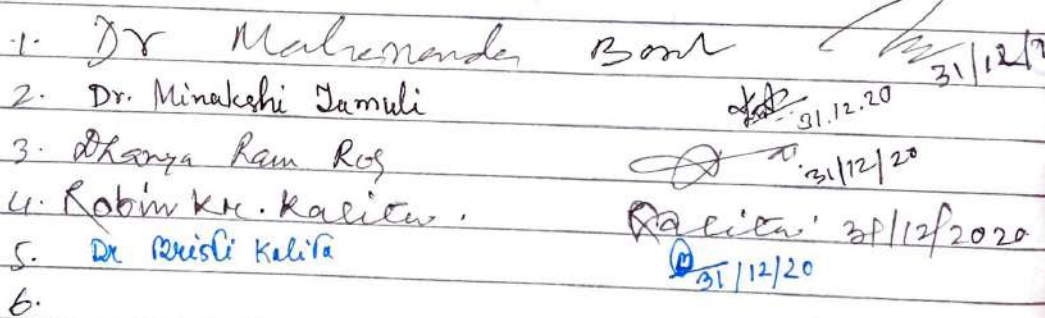 1. Dr Mahananda Borah 31/12/2
2. Dr. Minakshi Jamuli 31.12.20
3. Dhanya Ram Roy 31/12/20
4. Robin Kr. Kalita. Kalita 31/12/2020
5. Dr Bristi Kalita 31/12/20
6.